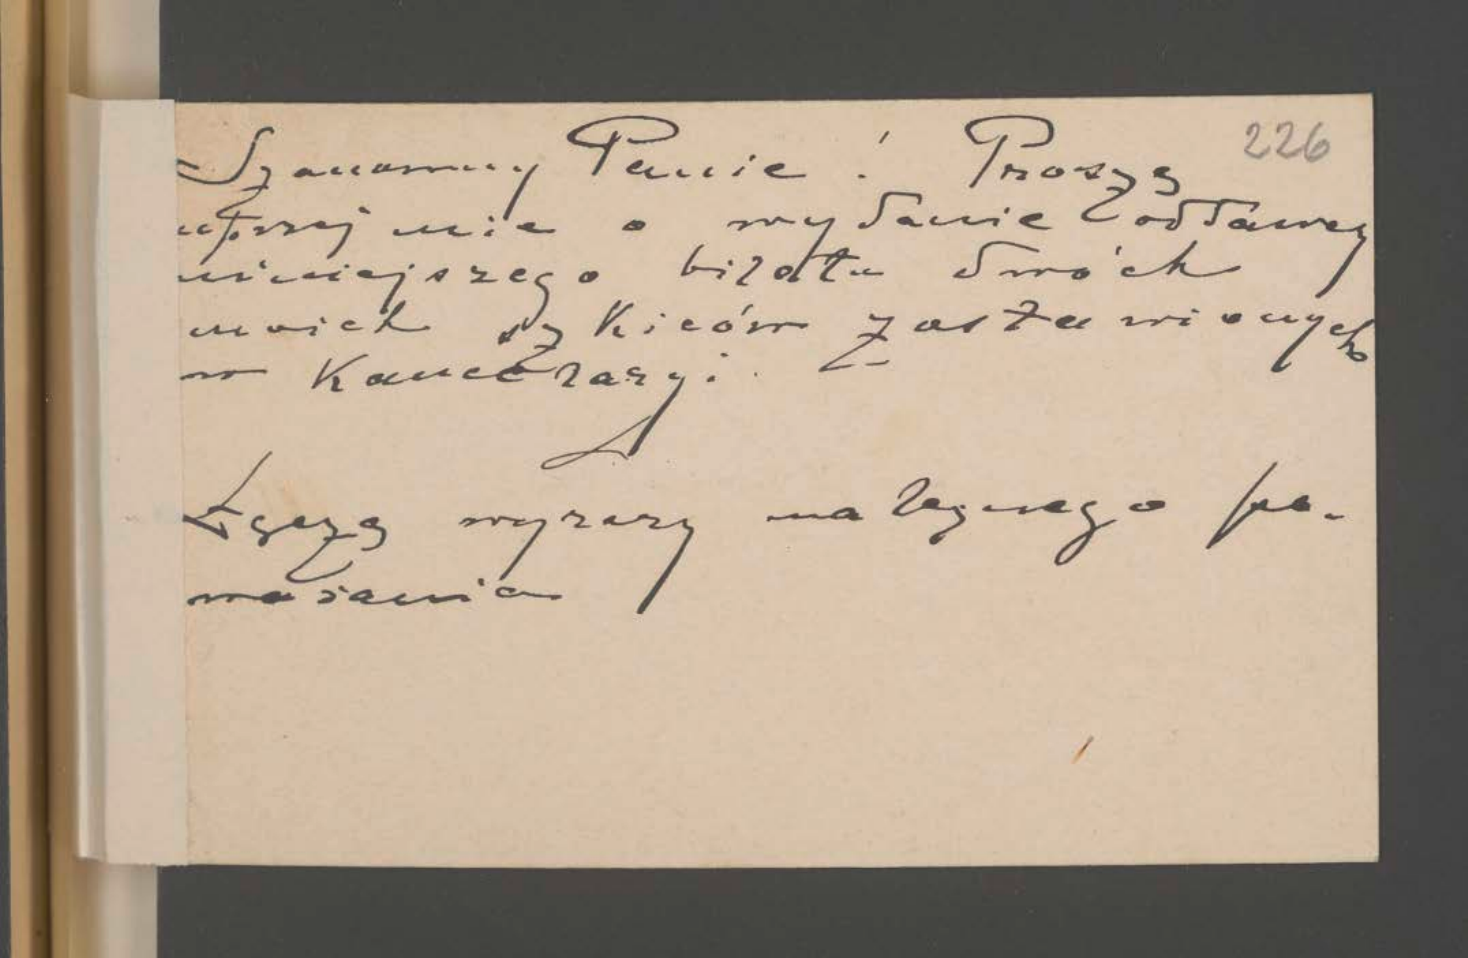 Szanowny Panie! Proszę 226
uprzejmie o wydanie oddawcy
niniejszego biletu dwóch
moich szkiców zostawionych
w Kancelaryi.
Łączę wyrazy należnego po-
ważania